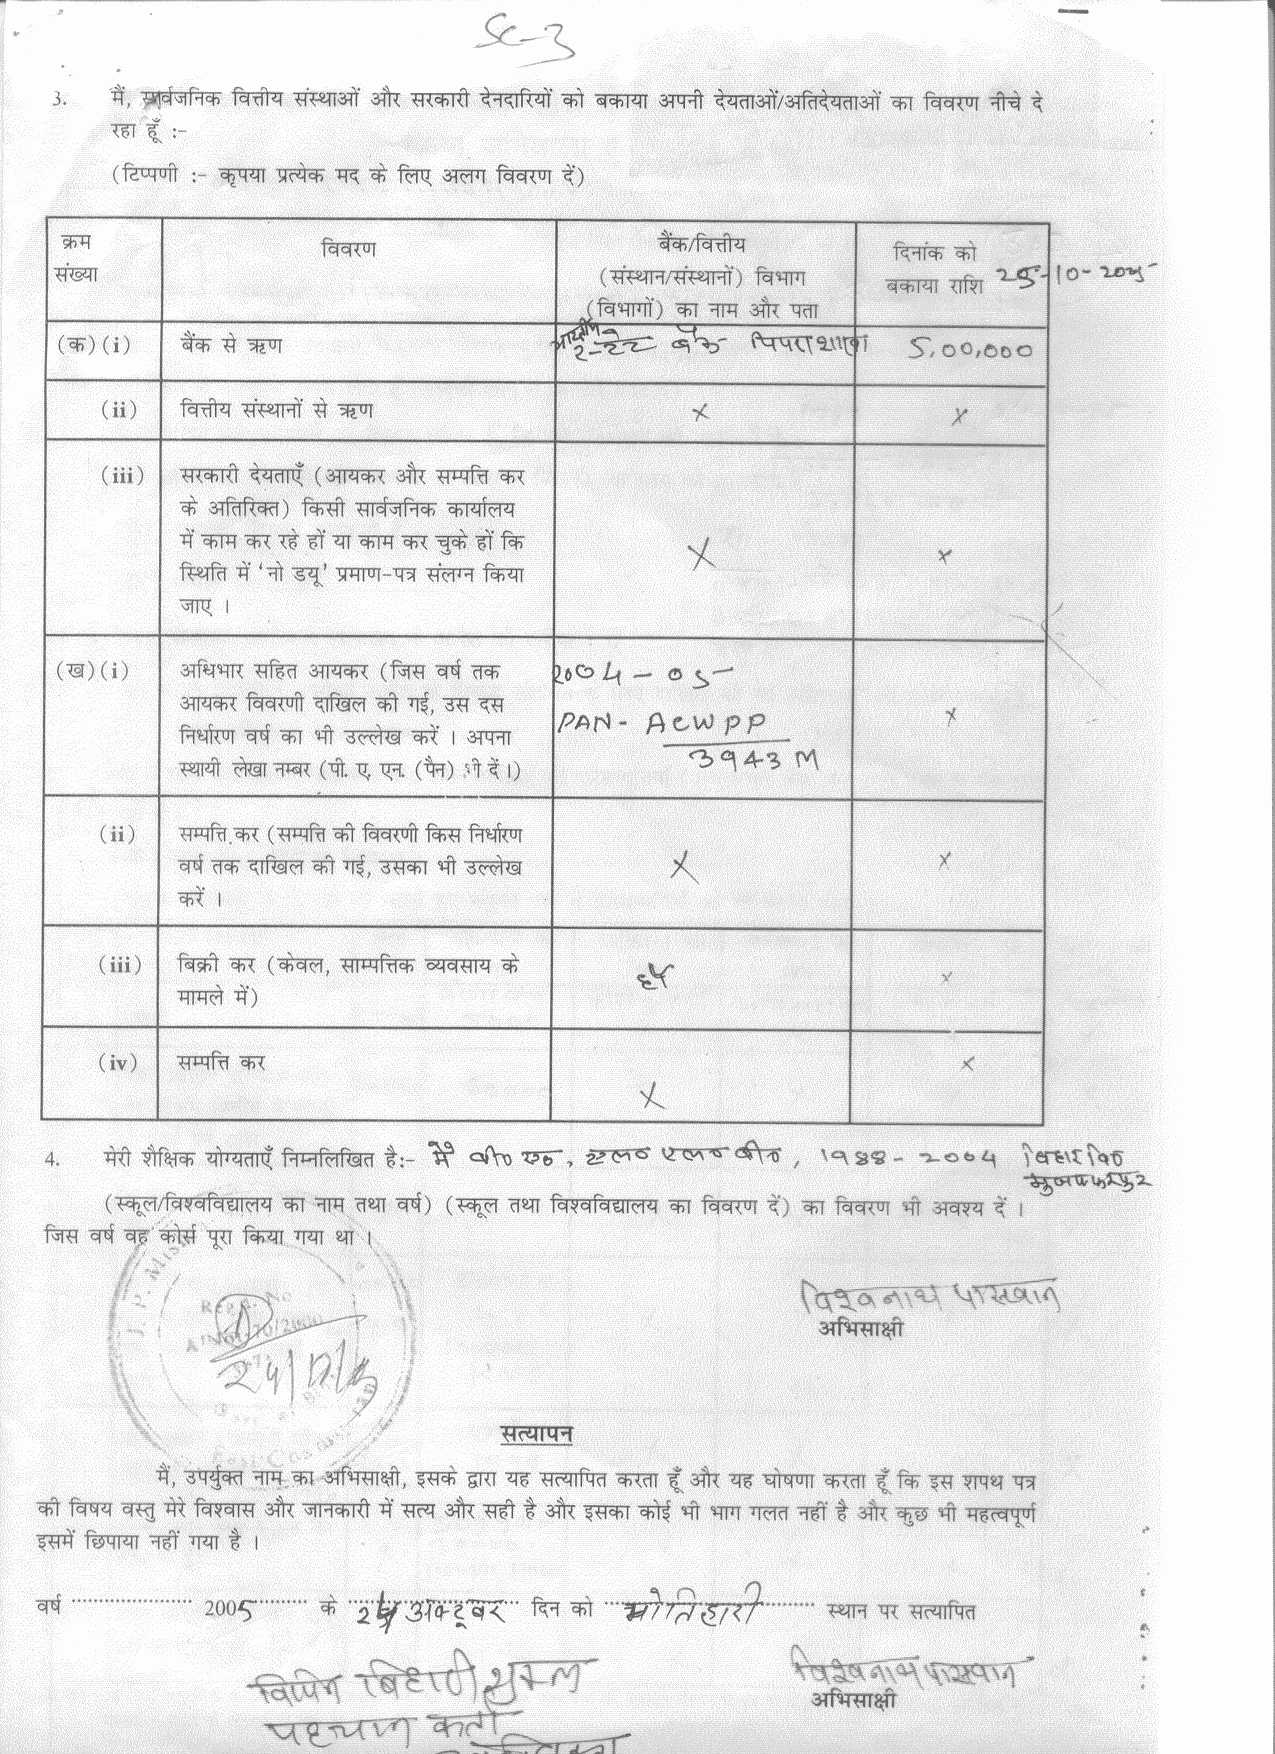 SC-3
3. मैं, सार्वजनिक वित्तीय संस्थाओं और सरकारी देनदारियों को बकाया अपनी देयताओं/अतिदेयताओं का विवरण नीचे दे
रहा हूँ :-
(टिप्पणी :- कृपया प्रत्येक मद के लिए अलग विवरण दें)
क्रम
संख्या
विवरण
बैंक/वित्तीय
(संस्थान/संस्थानों) विभाग
(विभागों) का नाम और पता
दिनांक को
बकाया राशि 25-10-2005
(क)(i) बैंक से ऋण भारतीय स्टेट बैंक पिपरा शाखा 5,00,000
(ii) वित्तीय संस्थानों से ऋण x x
(iii) सरकारी देयताएँ (आयकर और सम्पत्ति कर
के अतिरिक्त) किसी सार्वजनिक कार्यालय
में काम कर रहे हों या काम कर चुके हों कि
स्थिति में 'नो डयू' प्रमाण-पत्र संलग्न किया
जाए ।
x x
(ख)(i) अधिभार सहित आयकर (जिस वर्ष तक
आयकर विवरणी दाखिल की गई, उस दस
निर्धारण वर्ष का भी उल्लेख करें । अपना
स्थायी लेखा नम्बर (पी. ए. एन. (पैन) भी दें।)
2004-05
PAN- ACWPP
3943M
x
(ii) सम्पत्ति कर (सम्पत्ति की विवरणी किस निर्धारण
वर्ष तक दाखिल की गई, उसका भी उल्लेख
करें ।
x x
(iii) बिक्री कर (केवल, साम्पत्तिक व्यवसाय के
मामले में)
x
(iv) सम्पत्ति कर
x x
4. मेरी शैक्षिक योग्यताएँ निम्नलिखित है:- मैं बी० ए०, एल० एल० बी०, 1988-2004 बिहार वि०
मुजफ्फरपुर
(स्कूल/विश्वविद्यालय का नाम तथा वर्ष) (स्कूल तथा विश्वविद्यालय का विवरण दें) का विवरण भी अवश्य दें ।
जिस वर्ष वह कोर्स पूरा किया गया था ।
विश्वनाथ पासवान
अभिसाक्षी
सत्यापन
मैं, उपर्युक्त नाम का अभिसाक्षी, इसके द्वारा यह सत्यापित करता हूँ और यह घोषणा करता हूँ कि इस शपथ पत्र
की विषय वस्तु मेरे विश्वास और जानकारी में सत्य और सही है और इसका कोई भी भाग गलत नहीं है और कुछ भी महत्वपूर्ण
इसमें छिपाया नहीं गया है ।
वर्ष .................... 2005 .......... के .... अक्टूबर दिन को मोतिहारी ........ स्थान पर सत्यापित
विपिन बिहारी शुक्ल
पहचान कर्ता
विश्वनाथ पासवान
अभिसाक्षी